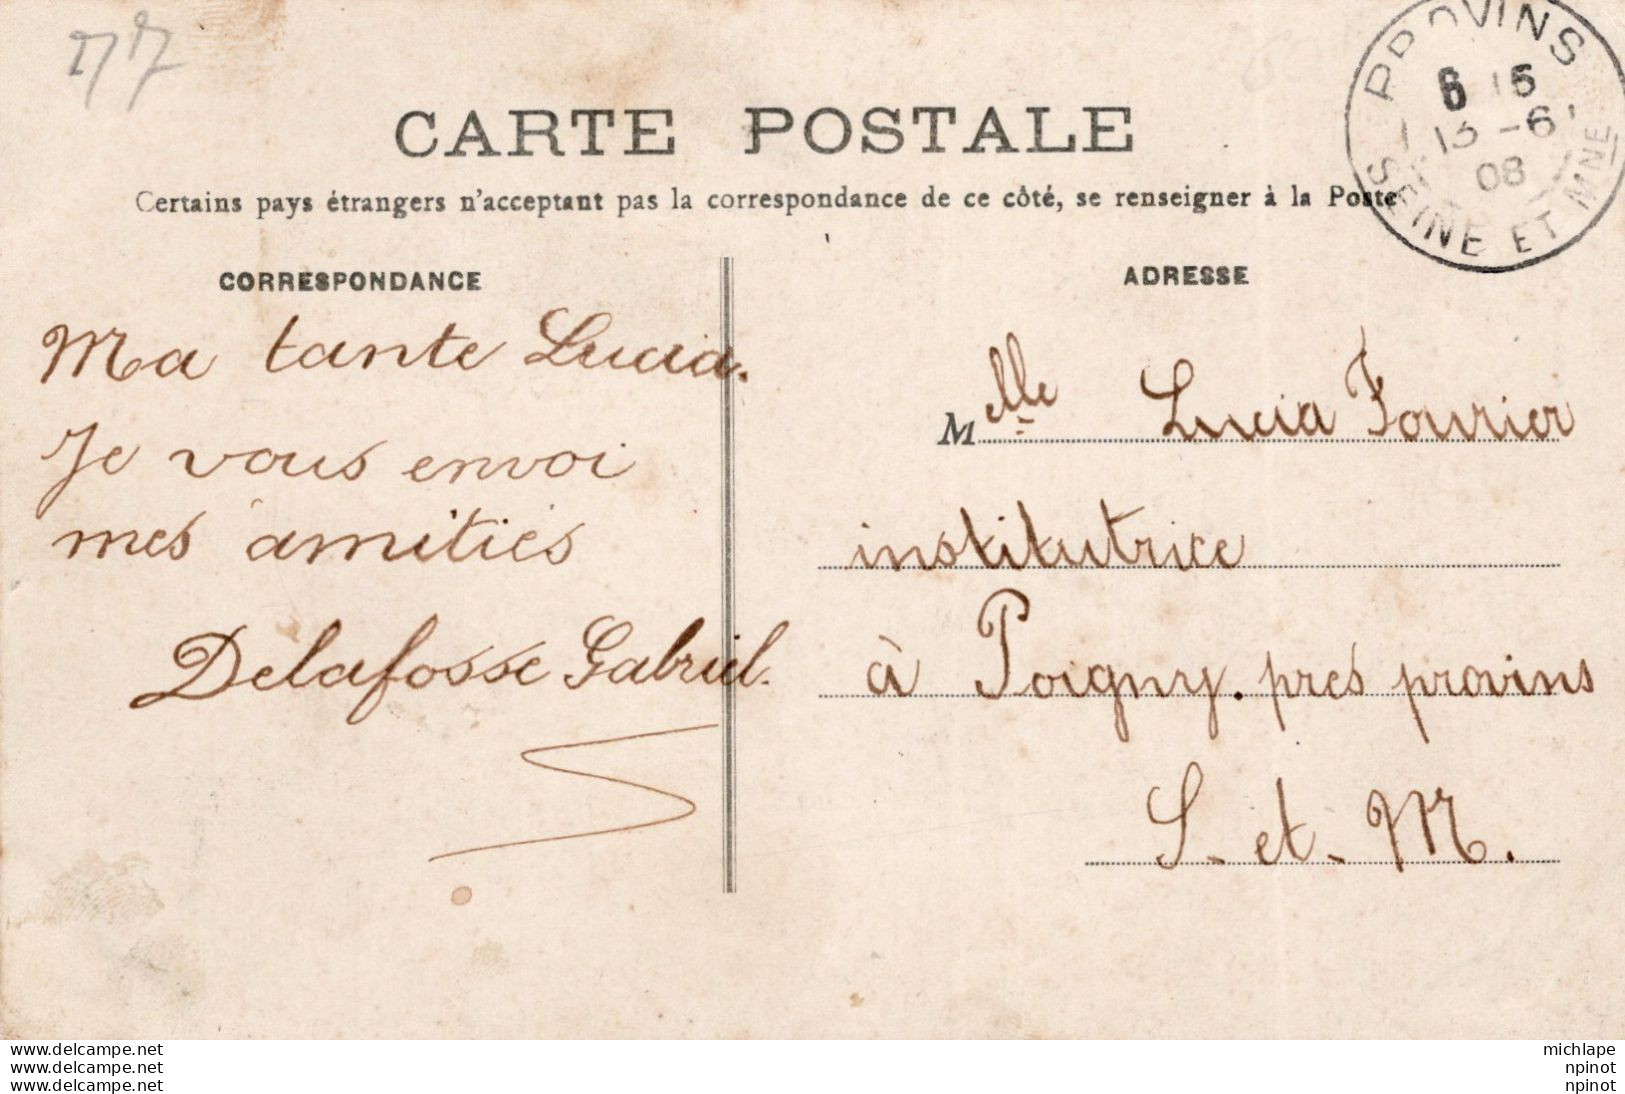 77
CARTE POSTALE
Certains pays étrangers n'acceptent pas la correspondance de ce côté, se renseigner à la Poste
PROVINS
13 -6
08
SEINE ET MNE
CORRESPONDANCE
Ma tante Lucia.
Je vous envoi
mes amitiés
Delafosse Gabriel.
ADRESSE
Melle Lucia Fourier
institutrice
à Poigny. pres provins
S. et. M.
www.delcampe.net
www.delcampe.net
www.delcampe.net
michlape
npinot
npinot